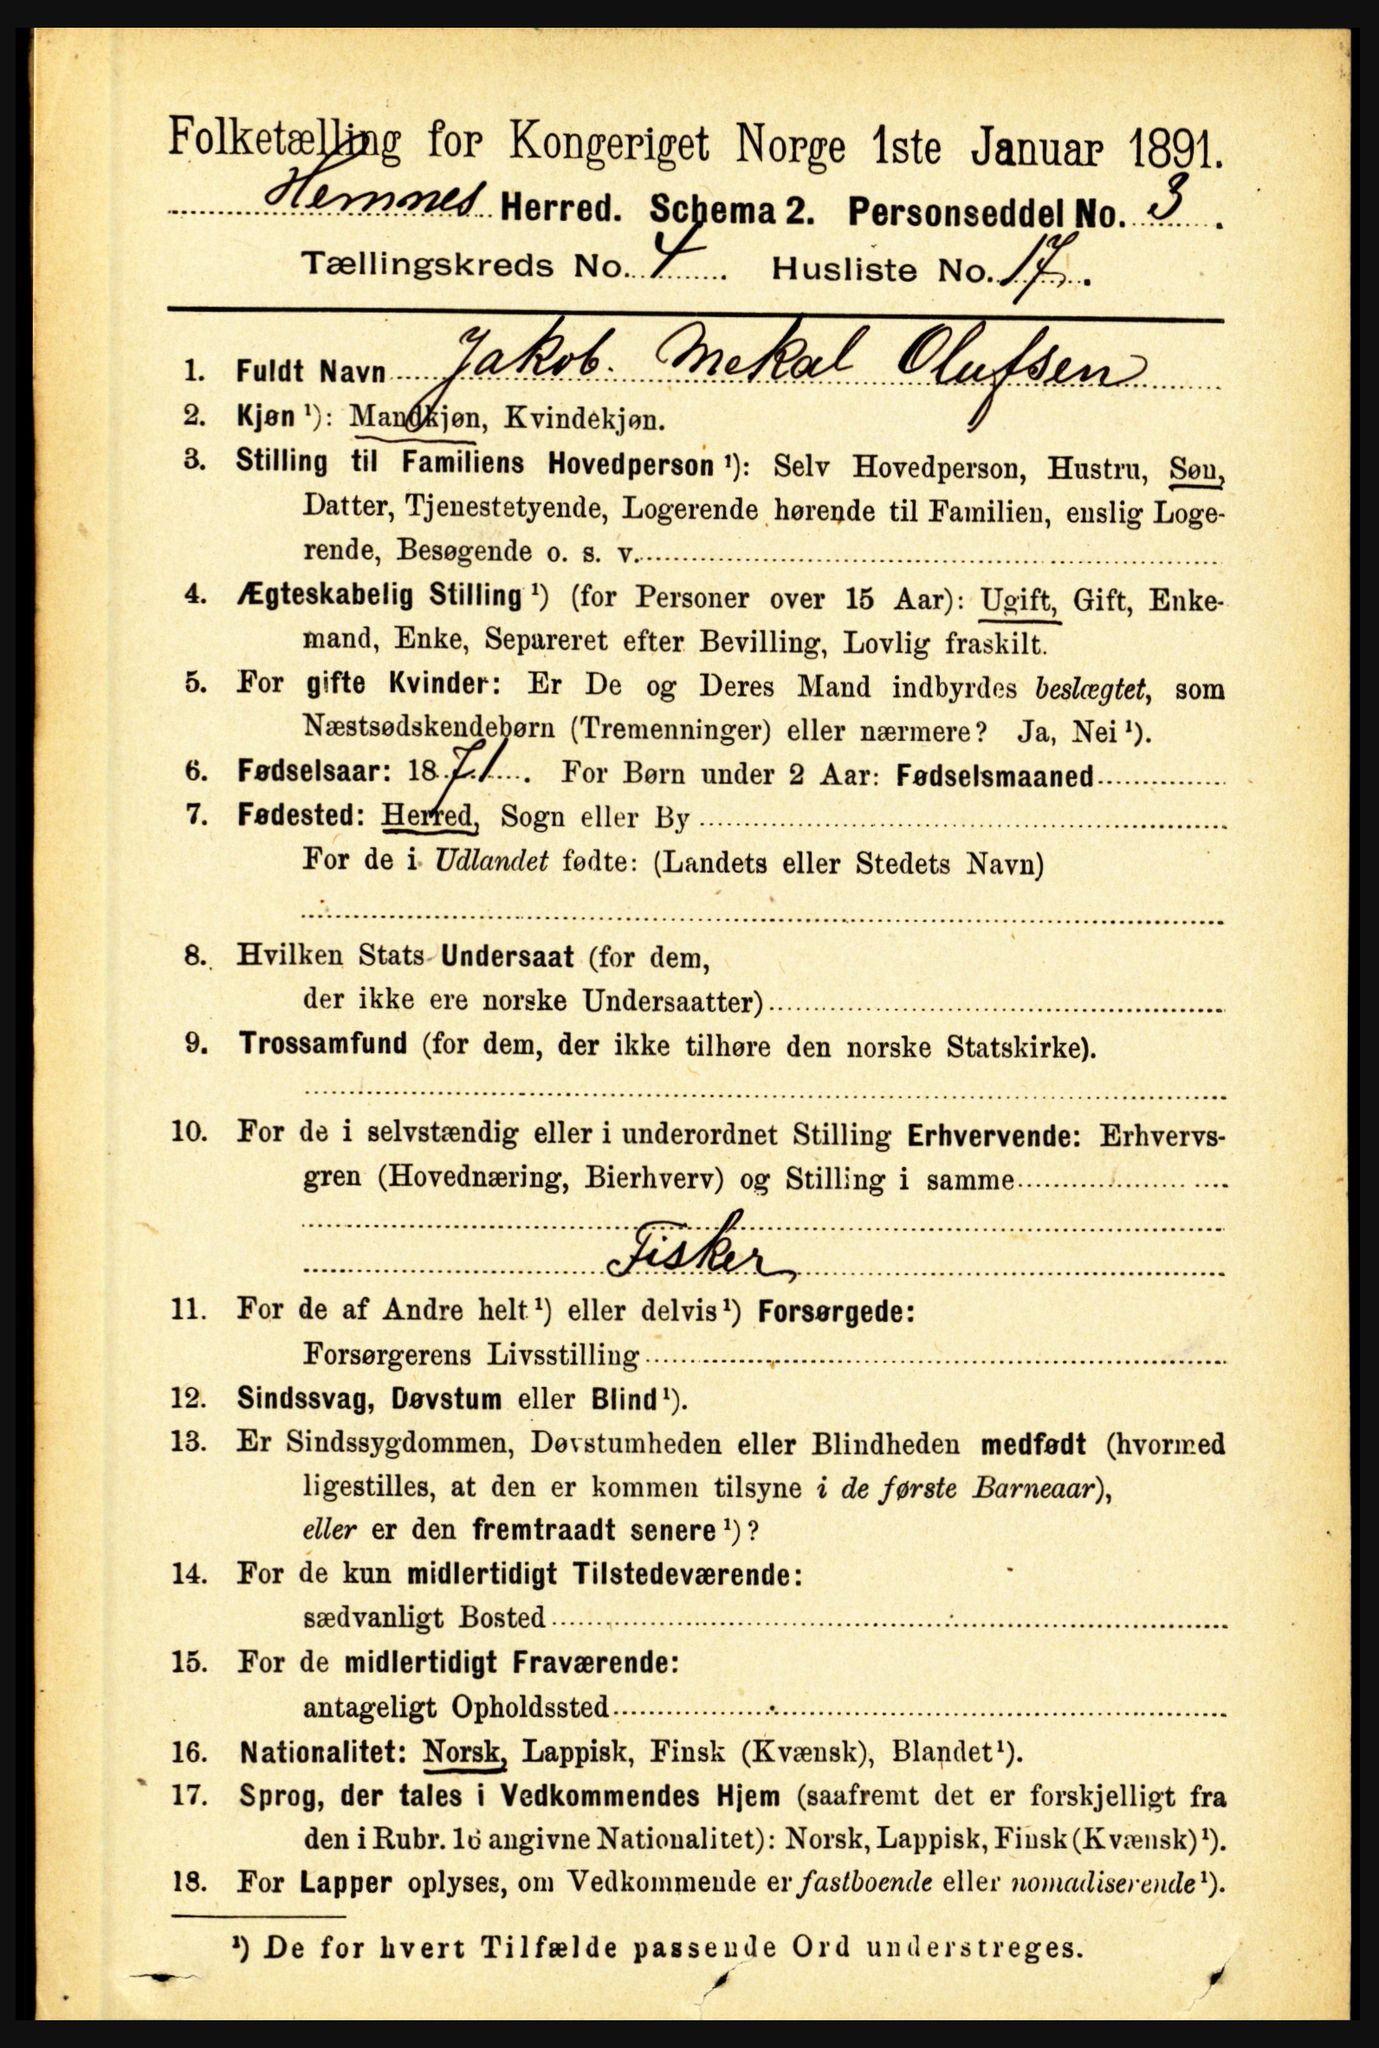 Folketælling for Kongeriget Norge 1ste Januar 1891.
Hemnes Herred. Schema 2. Personseddel No. 3.
Tællingskreds No. 4. Husliste No. 17.
1. Fuldt Navn Jakob Mekal Olufsen
2. Kjøn ¹): Mandkjøn, Kvindekjøn.
3. Stilling til Familiens Hovedperson ¹): Selv Hovedperson, Hustru, Søn,
Datter, Tjenestetyende, Logerende hørende til Familien, enslig Loge-
rende, Besøgende o. s. v.
4. Ægteskabelig Stilling ¹) (for Personer over 15 Aar): Ugift, Gift, Enke-
mand, Enke, Separeret efter Bevilling, Lovlig fraskilt.
5. For gifte Kvinder: Er De og Deres Mand indbyrdes beslægtet, som
Næstsødskendebørn (Tremenninger) eller nærmere? Ja, Nei ¹).
6. Fødselsaar: 1871. For Børn under 2 Aar: Fødselsmaaned
7. Fødested: Herred, Sogn eller By
For de i Udlandet fødte: (Landets eller Stedets Navn)
8. Hvilken Stats Undersaat (for dem,
der ikke ere norske Undersaatter)
9. Trossamfund (for dem, der ikke tilhøre den norske Statskirke).
10. For de i selvstændig eller i underordnet Stilling Erhvervende: Erhvervs-
gren (Hovednæring, Bierhverv) og Stilling i samme
Fisker
11. For de af Andre helt ¹) eller delvis ¹) Forsørgede:
Forsørgerens Livsstilling
12. Sindssvag, Døvstum eller Blind ¹).
13. Er Sindssygdommen, Døvstumheden eller Blindheden medfødt (hvormed
ligestilles, at den er kommen tilsyne i de første Barneaar),
eller er den fremtraadt senere ¹)?
14. For de kun midlertidigt Tilstedeværende:
sædvanligt Bosted
15. For de midlertidigt Fraværende:
antageligt Opholdssted
16. Nationalitet: Norsk, Lappisk, Finsk (Kvænsk), Blandet ¹).
17. Sprog, der tales i Vedkommendes Hjem (saafremt det er forskjelligt fra
den i Rubr. 16 angivne Nationalitet): Norsk, Lappisk, Finsk (Kvænsk) ¹).
18. For Lapper oplyses, om Vedkommende er fastboende eller nomadiserende ¹).
¹) De for hvert Tilfælde passende Ord understreges.